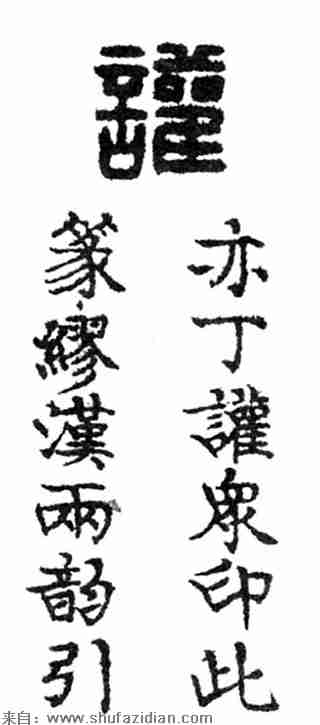 讙
亦丁讙眾印此
篆繆漢兩韵引
来自：www.shufazidian.com